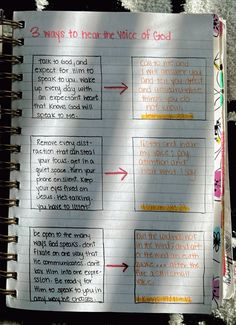 3 ways to hear the voice of God
Talk to God, and
expect for Him to
speak to you. Wake
up every day with
an expectant heart
that knows God will
speak to me.
Call to me and
I will answer you
and tell you
and unsearchable
things you do
not know.
Remove every dist-
raction that can steal
your focus. Get in a
quiet space. Turn your
phone on silent. Keep
your eyes fixed on
Jesus. He's talking,
you have to listen!
Listen and hear
my voice; pay
attention and
hear what I say
Be open to the many
ways God speaks. Don't
fixate on one way that
He communicates. Don't
box Him into one expre-
ssion. Be ready for
Him to speak to you in
any way He chooses.
But the Lord was not
in the wind and
the wind an earth
quake... after the
fire a still small
voice.